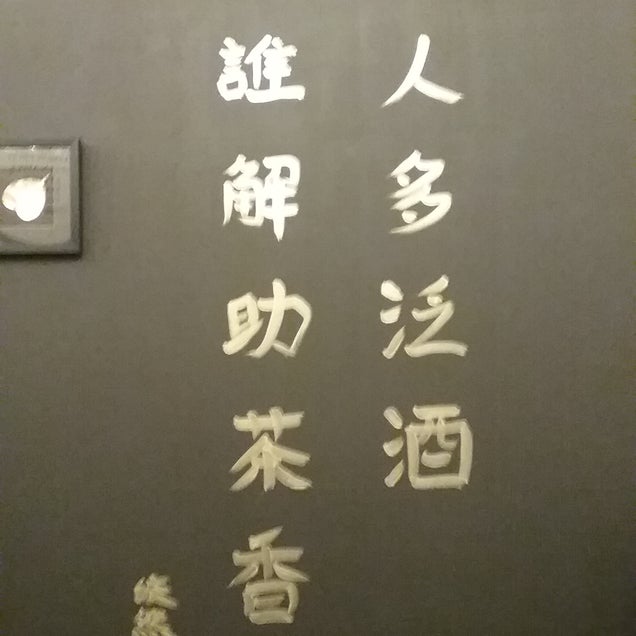 人多泛酒
誰解助茶香